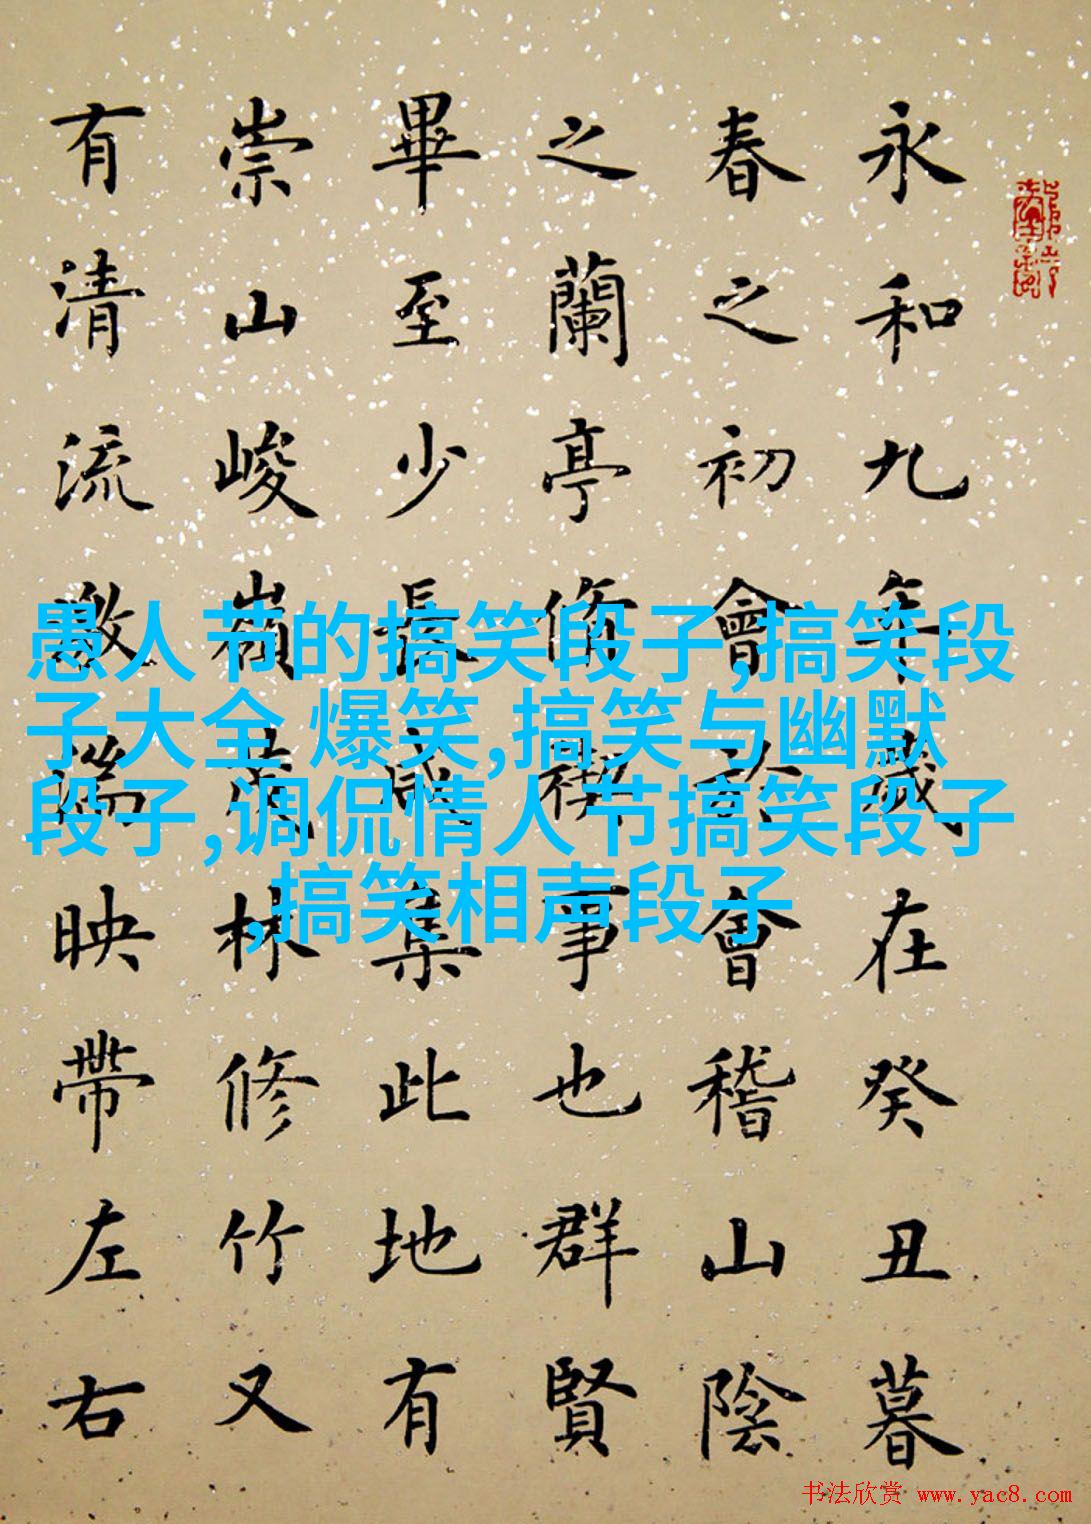 永和九年歲在癸丑暮
春之初會於會稽山陰
之蘭亭脩禊事也群賢
畢至少長咸集此地有
崇山峻嶺茂林修竹又
有清流激湍映帶左右
愚人节的搞笑段子,搞笑段
子大全 爆笑,搞笑与幽默
段子,调侃情人节搞笑段子
,搞笑相声段子
书法欣赏 www.yac8.com